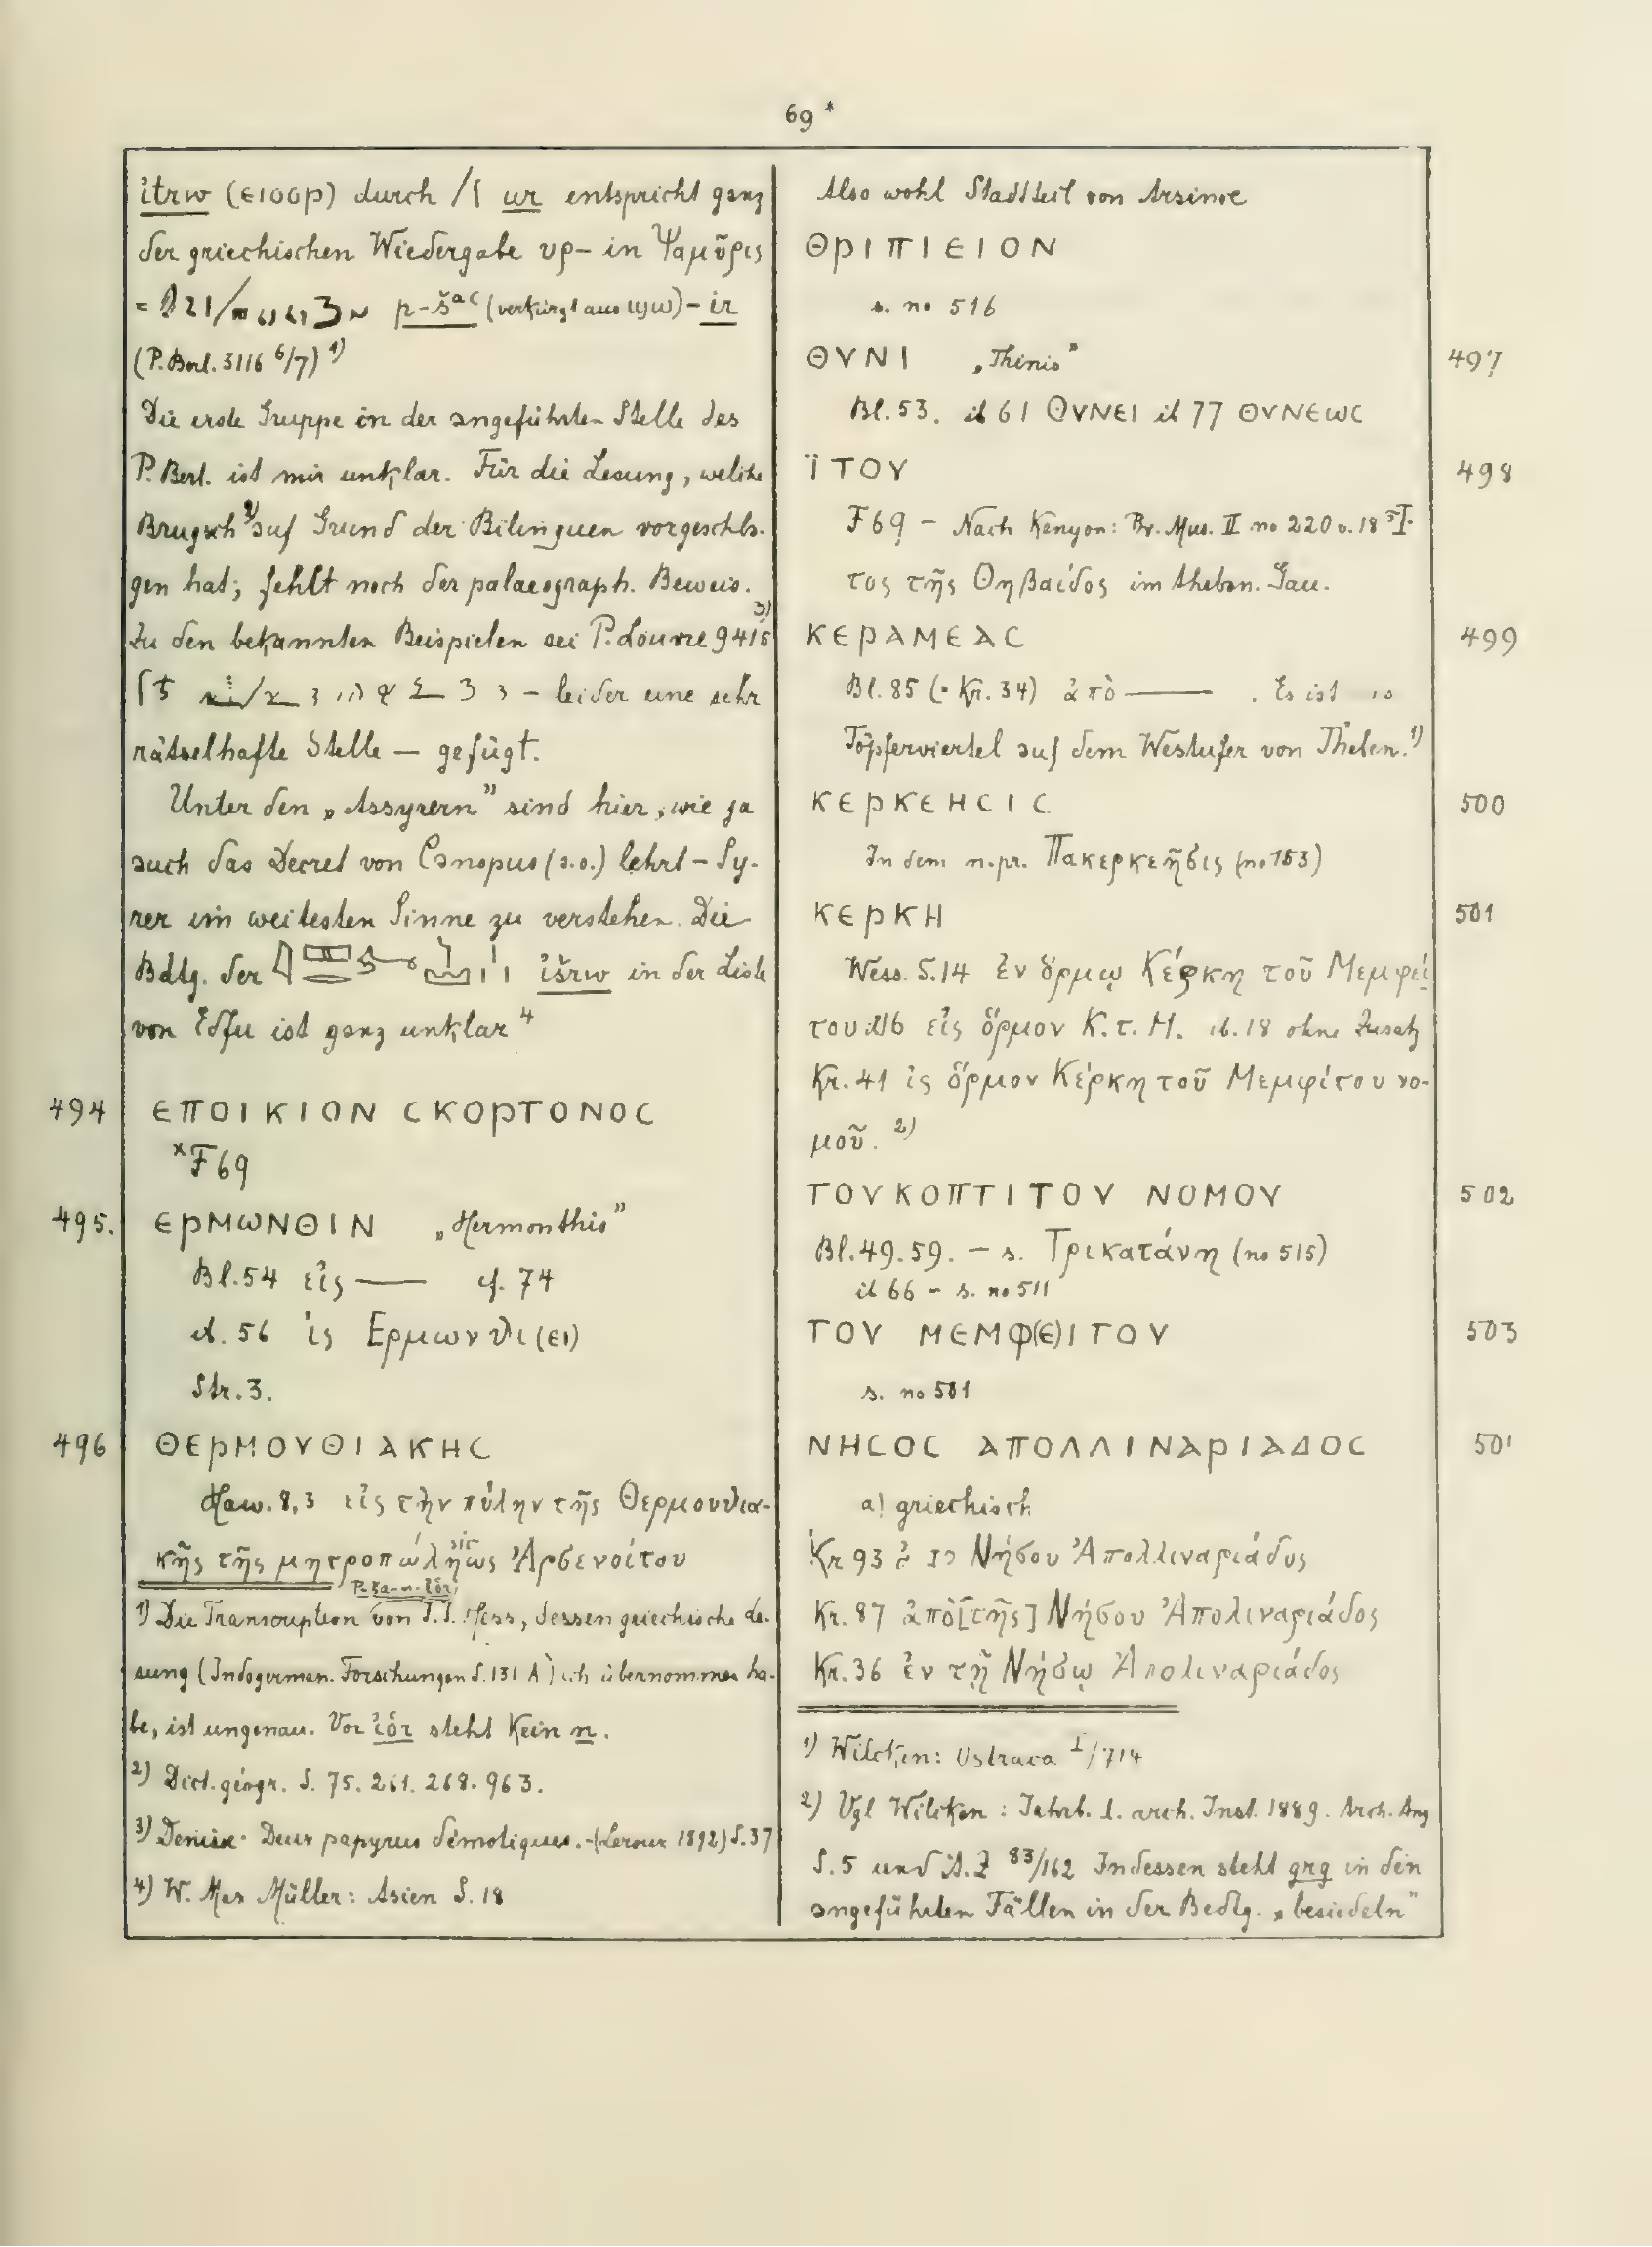 69*
itrw (ⲉⲓⲟⲟⲣ) durch ur entspricht ganz
der griechischen Wiedergabe υρ– in Ψαμῦρις
= p-šaʿ (verkürzt aus ϣω) – ir
(P. Berl. 3116 6/7) 1)
Die erste Gruppe in der angeführten Stelle des
P. Berl. ist mir unklar. Für die Lesung, welche
Brugsch 2) auf Grund der Bilinguen vorgeschla-
gen hat, fehlt noch der palaeograph. Beweis.
Zu den bekannten Beispielen sei P. Louvre 9415 3)
– leider eine sehr
rätselhafte Stelle — gefügt.
Unter den „Assyrern” sind hier, wie ja
auch das Decret von Canopus (s.o.) lehrt – Sy-
rer im weitesten Sinne zu verstehen. Die
Bdtg. der išrw in der Liste
von Edfu ist ganz unklar 4
494 ЄΠΟΙΚΙΟΝ CΚΟΡΤΟΝΟC
×F69
495. ЄΡΜωΝΘΙΝ „Hermonthis”
Bl. 54 εἰς —— cf. 74
ib. 56 ἰς Ερμωνθι(ει)
Str. 3.
496 ΘЄΡΜΟΥΘΙΑΚΗC
Haw. 8,3 εἰς τὴν πύλην τῆς Θερμουθια-
κῆς τῆς μητροπώλήως (sic) Ἀρσενοίτου
p-ša-n-iór
1) Die Transcription von J.J. Hess, dessen griechische Le-
sung (Indogerman. Forschungen S. 131 A) ich übernommen ha-
be, ist ungenau. Vor iór steht kein n.
2) Dict. géogr. S. 75. 261. 268. 963.
3) Deux papyrus démotiques. – (Leroux 1892) S. 37
4) W. Max Müller: Asien S. 18
Also wohl Stadtteil von Arsinoe
ΘΡΙΠΙЄΙΟΝ
s. no 516
ΘΥΝΙ „Thinis” 497
Bl. 53. ib 61 ΘΥΝЄΙ ib 77 ΘΥΝЄωC
ΪΤΟΥ 498
F69 – Nach Kenyon: Br. Mus. II no 220 v. 18
τος τῆς Θηβαίδος im theban. Gau.
ΚЄΡΑΜЄΑC 499
Bl. 85 (= Kr. 34) ἀπὸ —— . Es ist
Töpferviertel auf dem Westufer von Theben. 1)
ΚЄΡΚЄΗCΙC 500
In dem n. pr. Πακερκεῆσις (no 153)
ΚЄΡΚΗ 501
Wess. S. 14 ἐν ὅρμῳ Κέρκη τοῦ Μεμφεί
του ib 16 εἰς ὅρμον Κ. τ. Μ. ib. 18 ohne Zusatz
Kr. 41 ἰς ὅρμον Κέρκη τοῦ Μεμφίτου νο-
μοῦ. 2)
ΤΟΥ ΚΟΠΤΙΤΟΥ ΝΟΜΟΥ 502
Bl. 49. 59. – s. Τρικατάνη (no 515)
ib 66 – s. no 511
ΤΟΥ ΜЄΜΦ(Є)ΙΤΟΥ 503
s. no 501
ΝΗCΟC ΑΠΟΛΛΙΝΑΡΙΑΔΟC 50
a) griechisch
Kr 93 Νήσου Ἀπολλιναριάδος
Kr. 87 ἀπὸ [τῆς] Νήσου Ἀπολιναριάδος
Kr. 36 ἐν τῇ Νήσῳ Ἀπολιναριάδος
1) Wilcken: Ostraca I/714
2) Vgl Wilcken: Jahrb. d. arch. Inst. 1889. Arch. Anz
S. 5 und Ä.Z 83/162 Indessen steht grg in den
angeführten Fällen in der Bedtg. „besiedeln”